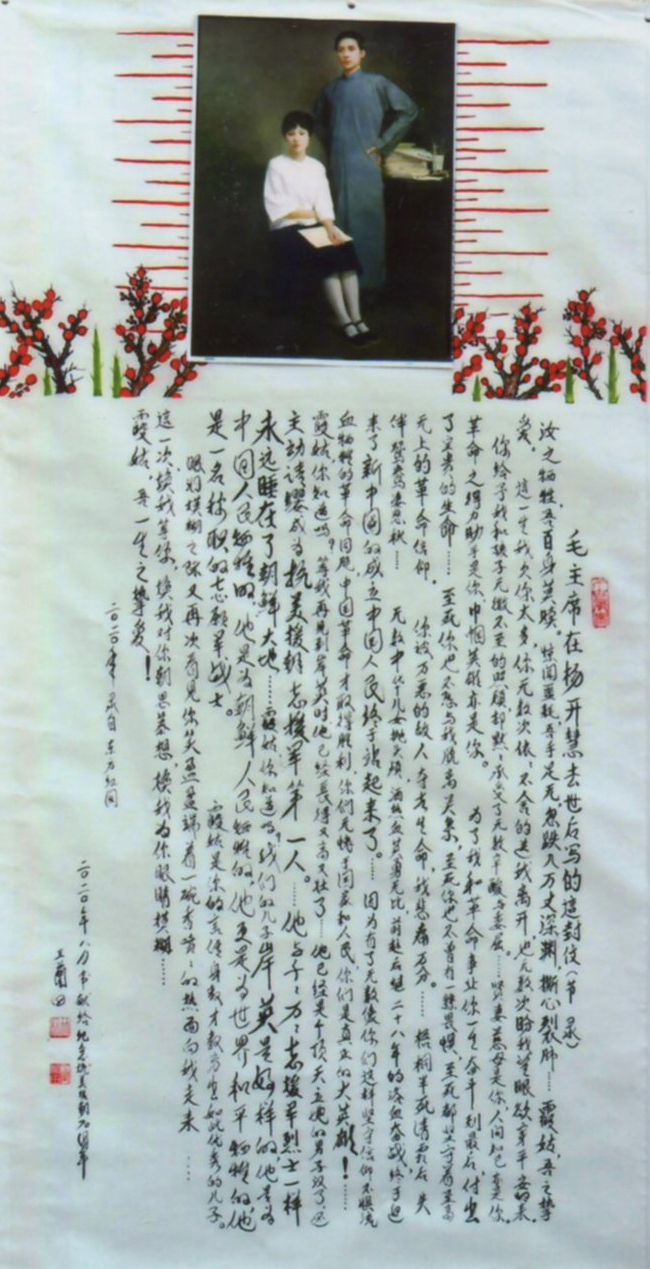 毛主席在杨开慧去世后写的這封信(节录)
汝之牺牲，吾百身莫赎。惊闻噩耗，吾手足无忽跌入万丈深渊，撕心裂肺……霞姑，吾之挚
爱，這一生我欠你太多，你无数次依依不舍的送我离开，也无数次盼我望眼欲穿平安归来。
你给予我和孩子无微不至的照顾，却默默承受了无数辛酸与委屈……贤妻慈母是你，人间知己亦是你，
革命之得力助手是你，巾帼英雄亦是你。为了我和革命事业你一生奋斗到最后，付出
了宝贵的生命……至死你也不愿与我脱离关系，至死你也不曾有一丝畏惧，至死都坚守着至高
无上的革命信仰。你被万恶的敌人夺去生命，我悲痛万分……梧桐半死清霜后 失
伴鸳鸯妻思秋……无数中华儿女抛头颅，洒热血英勇无比，前赴后继二十八年的浴血奋战，终于迎
来了新中国的成立中国人民终于站起来了。……因为有了无数像你们這样坚守信仰不惧流
血牺牲的革命同胞，中国革命才取得胜利，你们无愧于国家和人民，你们是真正的大英雄！……
霞姑，你知道吗？等我再见到岸英时他已经長得又高又壮了…他已经是个顶天立地的男子汉了还
主动请缨成为抗美援朝志援军第一人。……他与千千万万志援军烈士一样
永远睡在了朝鲜大地……霞姑你知道吗，我们的儿子岸英是好样的他是为
中国人民牺牲的，他是为朝鲜人民牺牲的，他更是为世界和平牺牲的，他
是一名称职的志愿军战士。霞姑是你的言传身教才教育出如此优秀的儿子。
眼前模糊之际又再次看见你笑盈盈端着一碗香喷喷的热面向我走来……
這一次，换我等你，换我对你朝思暮想，换我为你眼睛模糊……
霞姑，吾一生之挚爱！
二〇二〇年 录自东方红网
二〇二〇年八月书献给纪念抗美援朝七十周年